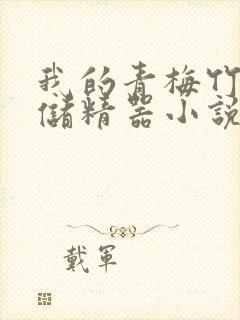 我的青梅竹
儲精器小說
戴軍